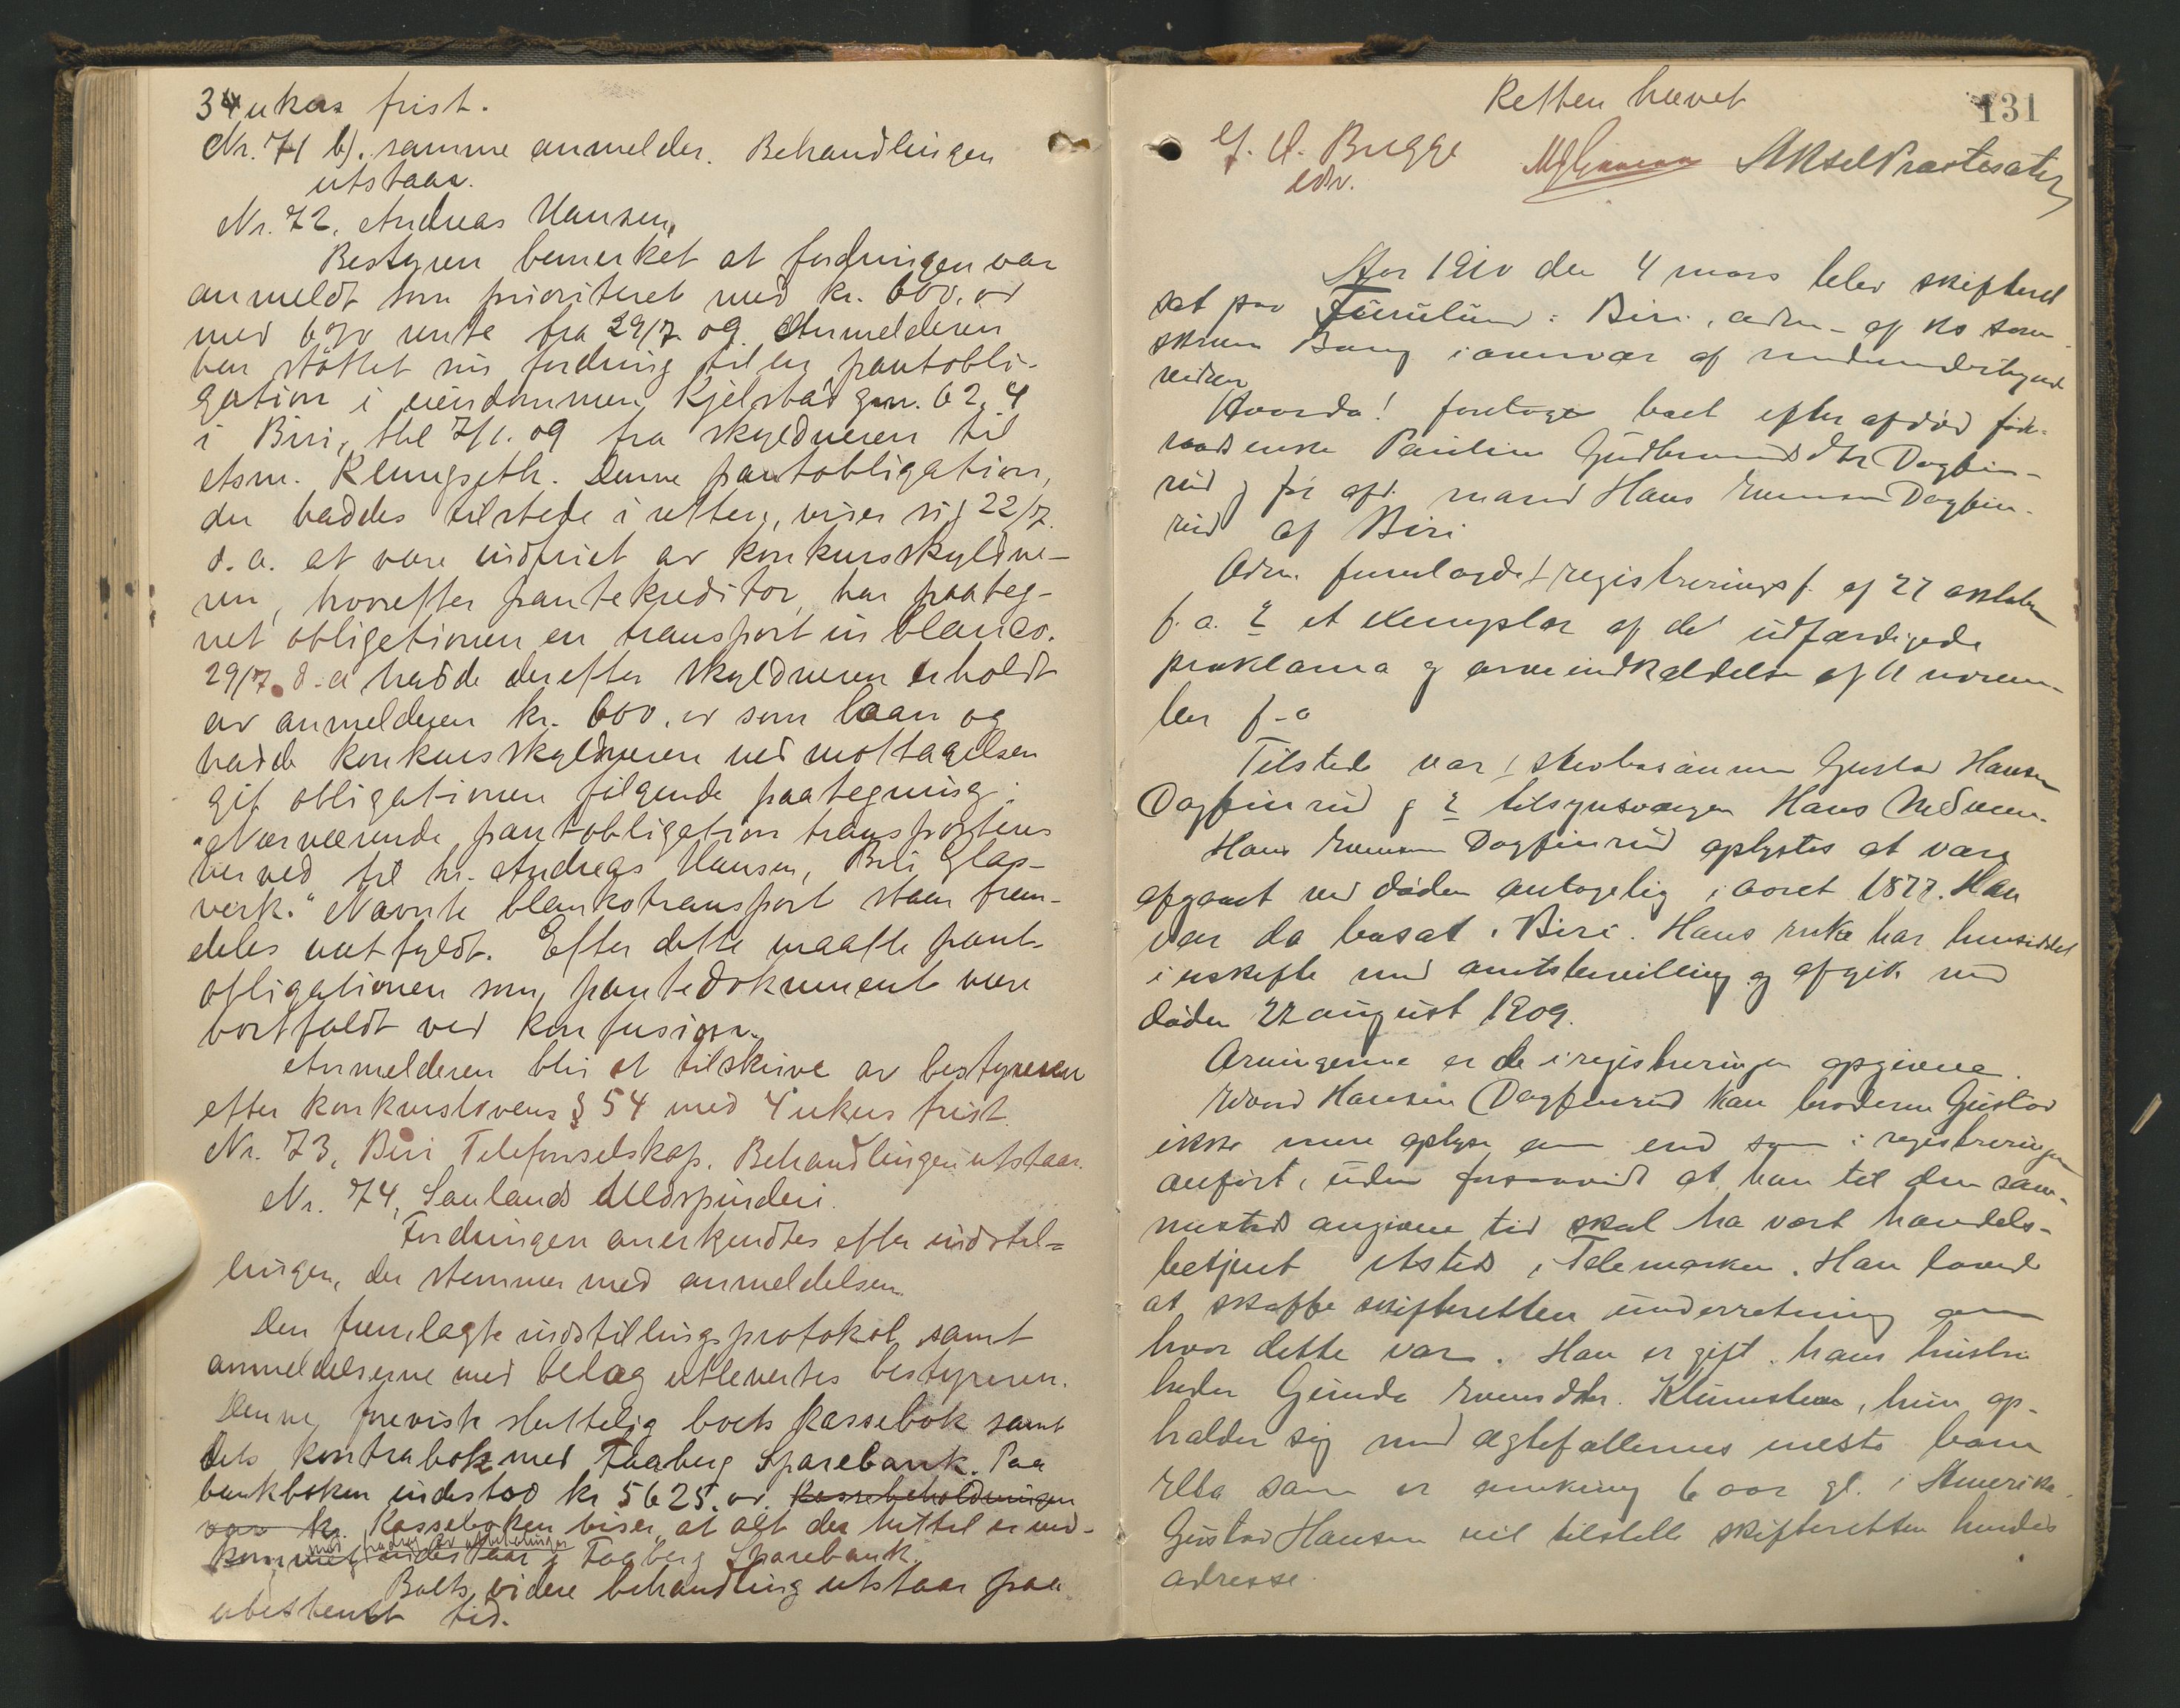 34 ukers frist.
Nr. 71 b). samme anmelder. Behandlingen
utstaar.
Nr. 72, Andreas Hansen,
Bestyren bemerket at fordringen var
anmeldt som prioriteret med kr. 600,00
med 6% rente fra 29/7. 09. Anmelderen
har støttet sin fordring til en pantobli-
gation i eiendommen Kjelstad gnr. 62, 4
i Biri, thl 7/1. 09 fra skyldneren til
etsm. Klungseth. Denne pantobligation,
der haddes tilstede i retten, viser sig 22/7.
d. a. at være indfriet av konkursskyldne-
ren, hvorefter pantekreditor har paateg-
net obligationen en transport in blanco.
29/7. d. a hadde derefter skyldneren erholdt
av anmelderen kr. 600,00 som laan og
hadde konkursskyldneren ved mottagelsen
git obligationen følgende paategning:
"Nærværende pantobligation transporteres
herved til hr. Andreas Hansen, Biri Glas-
verk." Nævnte blankotransport staar frem-
deles uutfyldt. Efter dette maatte pant-
obligationen som pantedokument være
bortfaldt ved konfusion.
Anmelderen blir at tilskrive av bestyreren
efter konkurslovens § 54 med 4 ukers frist.
Nr. 73, Biri Telefonselskap. Behandlingen utstaar.
Nr. 74, Saulands Uldspinderi.
Fordringen anerkjendtes efter indstil=
lingen, der stemmer med anmeldelsen.
Den fremlagte indstillingsprotokol samt
anmeldelserne med belæg utlevertes bestyreren.
Denne foreviste sluttelig boets kassebok samt
dets kontrabok med Faaberg Sparebank. Paa
bankboken indestod kr 5625.00. Kassebeholdningen
var kr. Kasseboken viser at alt der hittil er ind-
med fradrag av utbetalinger
kommet indestaar i Faaberg Sparebank.
Boets videre behandling utstaar paa
ubestemt tid.
Retten hævet
131
E. U. Bugge
edv.
Aksel Præstesæter
Aar 1910 den 4 mars blev skifteret
sat paa Furulund i Biri, adm. af ks soren-
skriver Bang i overvær af nedenunderskrevne
vidner
Hvorda! foretoges boet efter afdød føde-
raadsenke Pauline Gudbrandsdtr Dagfin-
rud og før afd. mand Hans Evensen Dagfin-
rud af Biri
Adm. fremlagde 1 registreringsf. af 27 oktober
f. a. 2 et exemplar af det udfærdigede
proklama og arveindkaldelse af 11 novem-
ber f-a
Tilstede var 1 skrobosønnen Gustav Hansen
Dagfinrud og 2 tilsynsværgen Hans Nedveen.
Hans Evensen Dagfinrud oplystes at være
afgaaet ved døden antagelig i aaret 1877. Han
var da bosat i Biri. Hans enke har hensiddet
i uskifte med amtsbevilling og afgik ved
døden 22 august 1909.
Arvingerne er de i registreringen opgivne.
Edvard Hansen Dagfinrud kan broderen Gustav
ikke mere oplyse om end som i registreringen
anført, uden forsaavidt at han til den sam-
mesteds angivne tid skal ha vært handels-
betjent etsteds i Telemarken. Han lovede
at skaffe skifteretten underretning om
hvor dette var. Han er gift. hans hustru
heder Gunda Evensdtr. Klunsteen, hun op-
holder sig med ægtefællernes eneste barn
Ella som er omkring 6 aar gl. i Amerika.
Gustav Hansen vil tilstille skifteretten hendes
adresse.